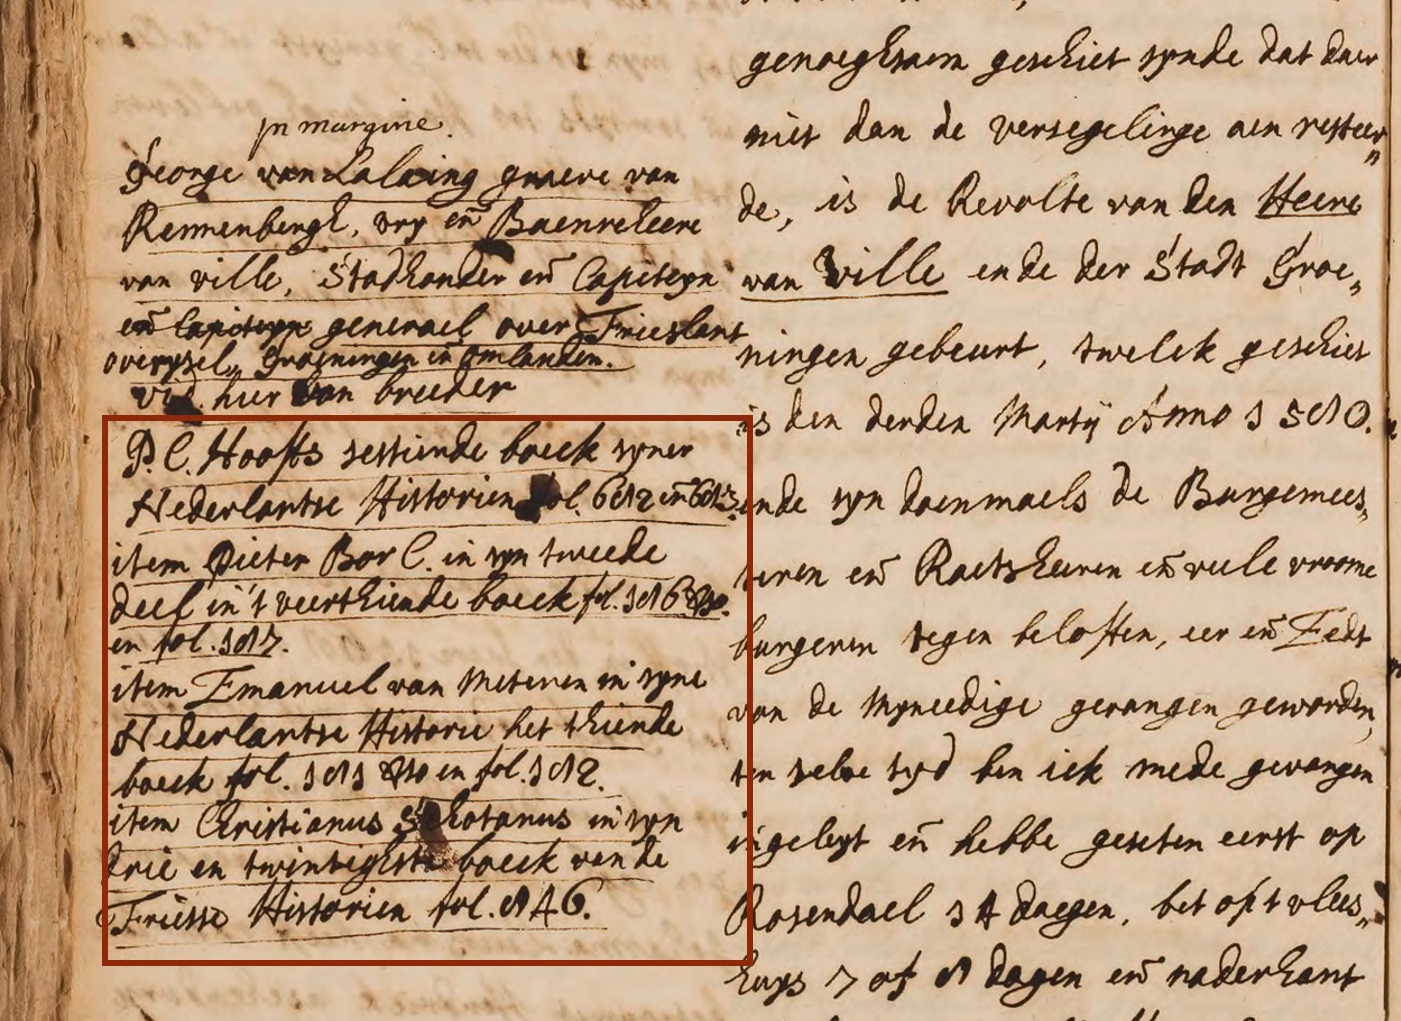 In margine.
George van Lalaing graeve van
Rennenbergh, vry en̄ Baenreheere
van ville, Stadhouder en̄ Capiteyn
en̄ Capiteyn generael over Frieslant
overyssel, Groeningen en̄ omlanden.
vid. hier van breeder
P. C. Hoofts sestiende boeck syner
Nederlantse Historien fol. 682 en̄ 683.
item Pieter Bor C. in syn tweede
deel in't veerthiende boeck fol.
en fol. 187.
item Emanuel van Meteren in syne
Nederlantse Historie het thiende
boeck fol. 181 en fol. 182.
item Christianus Schotanus in syn
drie en twintighste boeck van de
Friesse Historien fol. 846.
genoeghsaem geschiet synde dat daer
niet dan de versegelinge aen resteer„
de, is de Revolte van den Heere
van Ville ende der Stadt Groe„
ningen gebeurt, twelck geschiet
is den derden Martij Anno 1580.
ende syn doenmaels de Burgemees„
teren en̄ Raetsheeren en̄ veele vroome
burgeren tegen beloften, eer en̄ Eedt
van de Myneedige gevangen geworden,
ten selve tyd ben ick mede gevangen
ingeleyt en̄ hebbe geseten eerst op
Rosendael 14 daegen, bet op't vlees„
huys 7 of 8 dagen en̄ naderhant